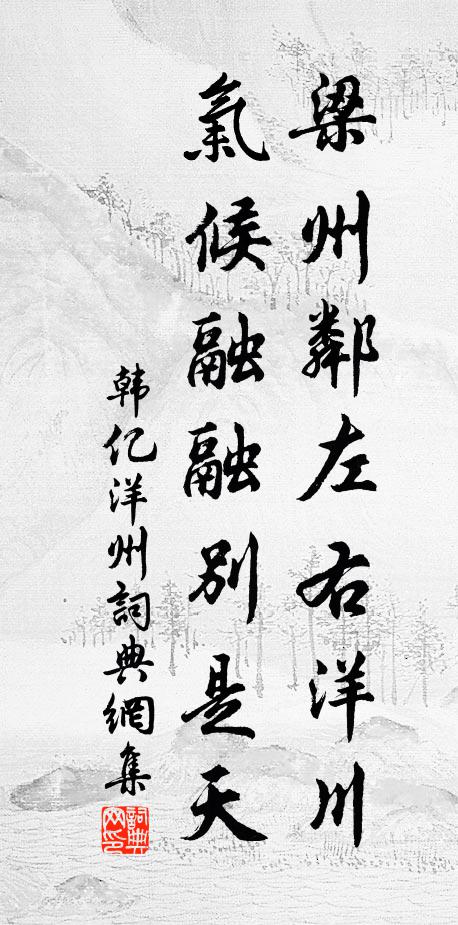 梁州鄰左右洋川
氣候融融別是天
韩亿洋州詞典網集
詞典网印